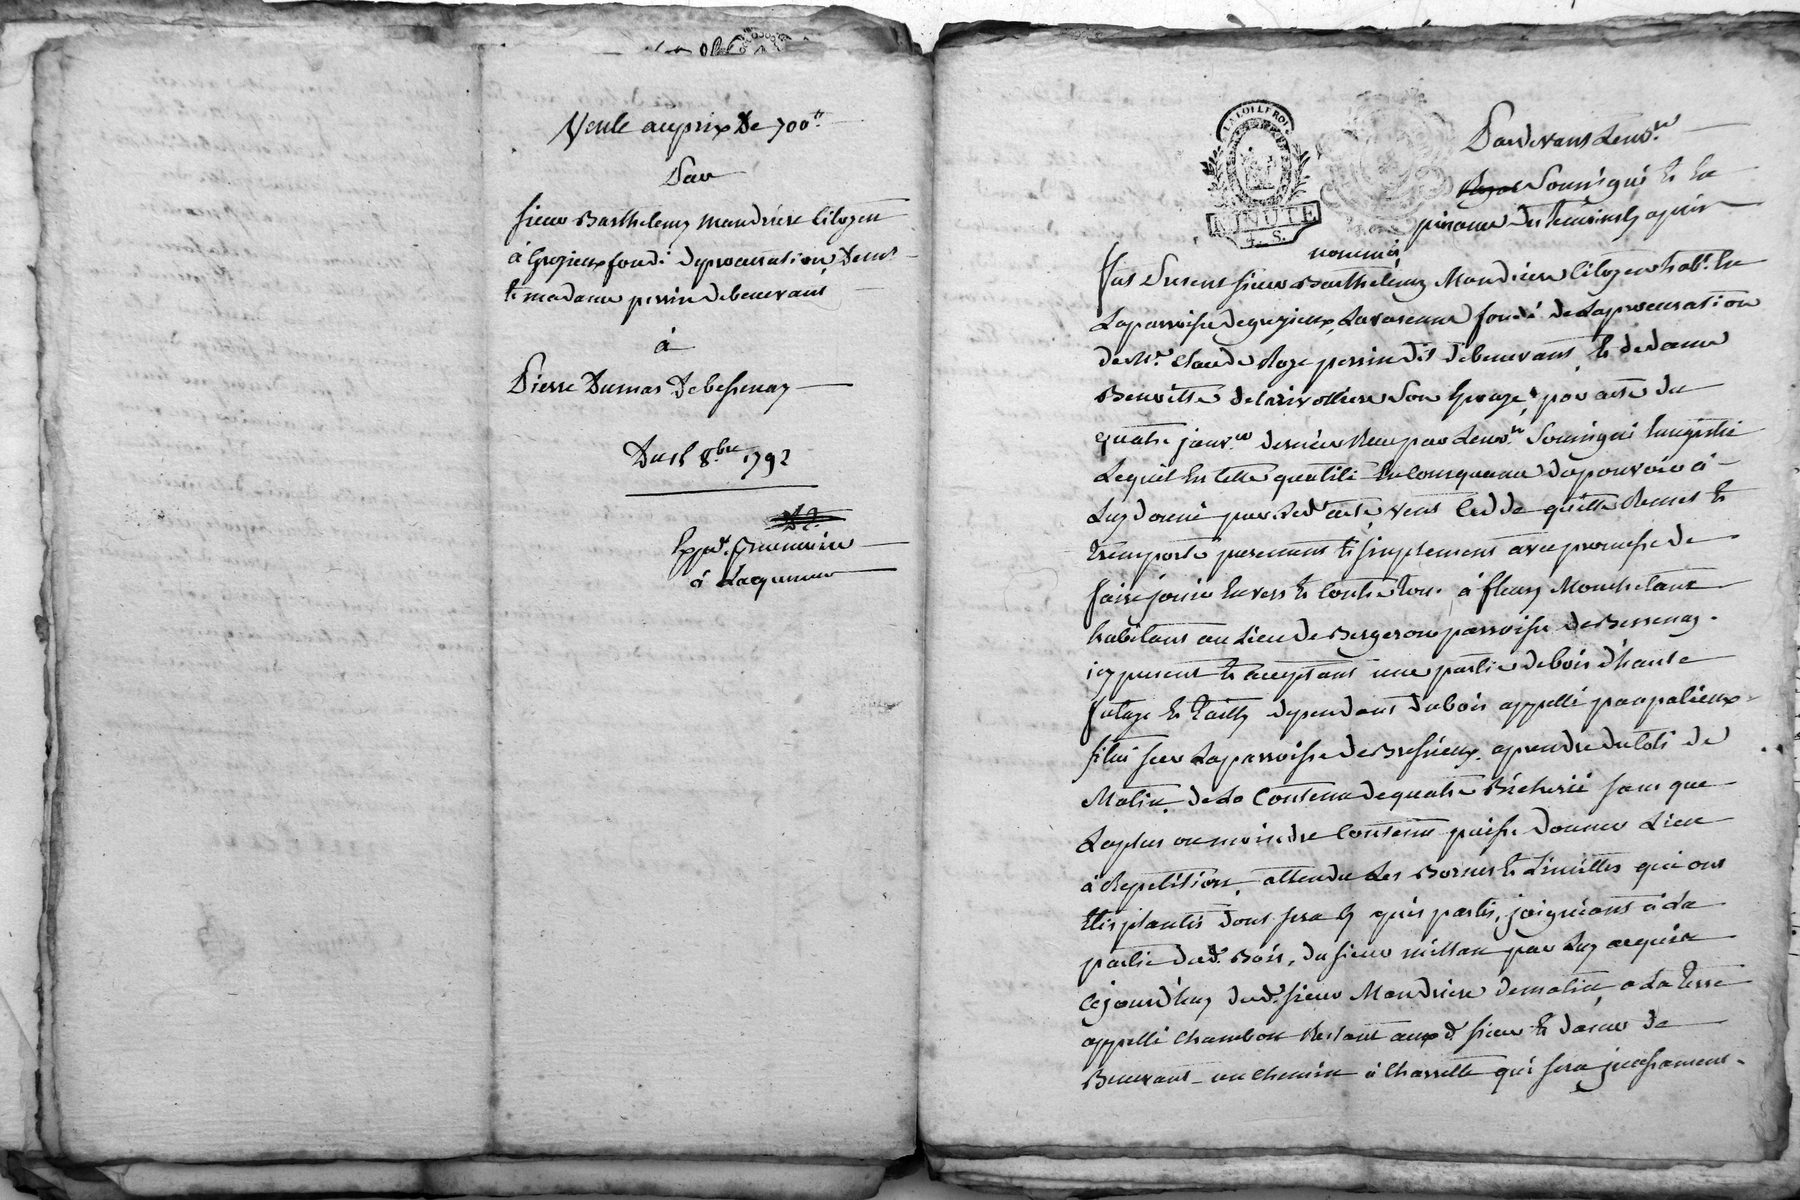 Vente au prix De 700ᵗᵗ
Par
sieur Barthelemy Mandriere Citoyen
à Grezieux fondé De procuration De mr
et madame perrin de benevant
à
Pierre Dumas De bessenay
Du 15 8bre 1792
Expé. premiere
à Lacquereur
LA LOI LE ROI
MINUTE
4. S.
Pardevant Le no.re
Royal Soussigné et En
presence Des temoins Cy apres
nommés
fut Present sieur Barthelemy Mandriere Citoyen habt. En
La parroisse de grezieux Lavarenne fondé de La procuration
de Mr. Claude Roze perrin dit de benevant, et de dame
Benoitte De Larivolliere Son Epouze, par acte du
quatre janv.er dernier Reçu par Le no.re Soussigné Enregistré
Lequel En Cette qualité En Consequence Du pouvoir à
Luy donné par Led. acte, vend Cede quitte Remet et
transporte purement et simplement avec promesse de
faire jouir Envers et Contre tous à fleury
habitant au Lieu De Bergeron parroisse de Bessenay.
icy present et acceptant une partie de bois d'haute
futaye et tailly dependant du bois appellé
situé sur La parroisse de Brussieux. a prendre du Coté de
Matin, de La Contenue de quatre Bicherée sans que
La plus ou moindre Contenue puisse donner Lieu
à Repetition, attendu Les Bornes et Limittes qui ont
Etés plantés dont sera Cy après parlé, joignant à La
partie dud. Bois, du sieur millan par Luy acquise
Cejourd'huy dud. sieur Mandriere de matin, a La terre
appellé Chambon Restant aux d. sieur et dame de
Benevant un chemin à Charrette qui sera